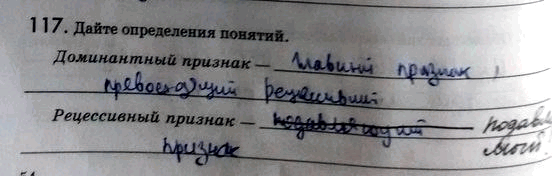 117. Дайте определения понятий.
Доминантный признак — главный признак,
превосходящий рецессивный
Рецессивный признак — подавляющий подавля
признак емый